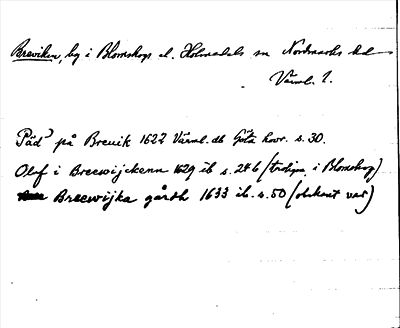 Breviken, by i Blomskogs el. Holmedals sn Nordmarks hd
Värml. l.
Päd på Breuik 1622 Värml. db Göta hovr. s. 30.
Olof i Breewijckenn 1629 ib s. 246 (troligen i Blomskog)
Breewijka gårdh 1633 ib. s. 50 (obekant var)